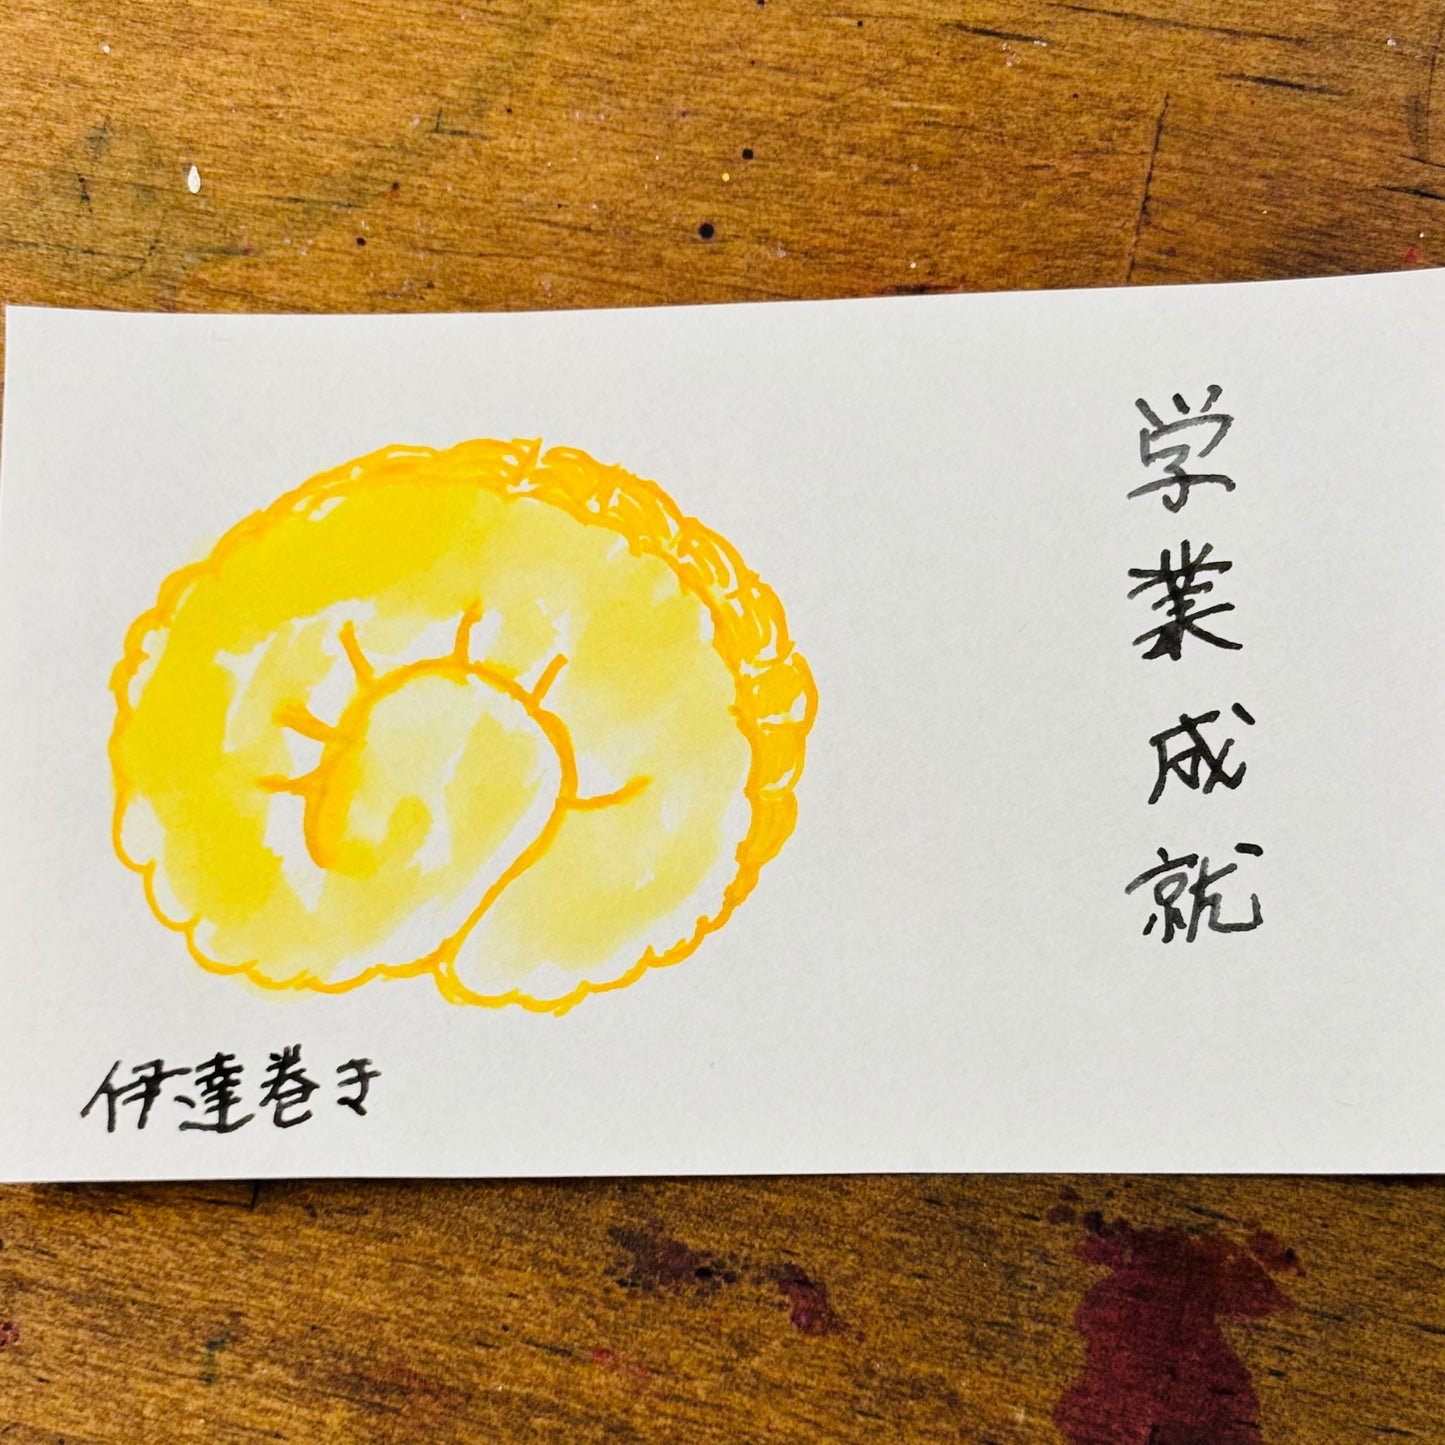 学業成就
伊達巻き